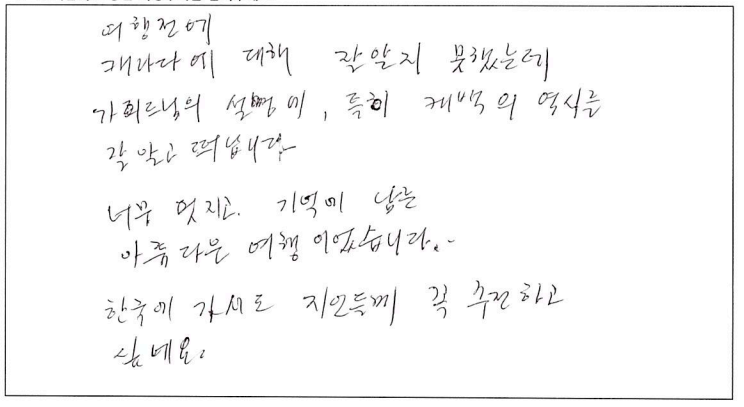 여행전에
캐나다에 대해 잘알지 못했는데
가이드님의 설명에, 특히 퀘백의 역사를
잘 알고 떠납니다.
너무 멋지고. 기억에 남는
아름다운 여행 이었습니다..
한국에 가서도 지인들께 꼭 추천하고
싶네요.